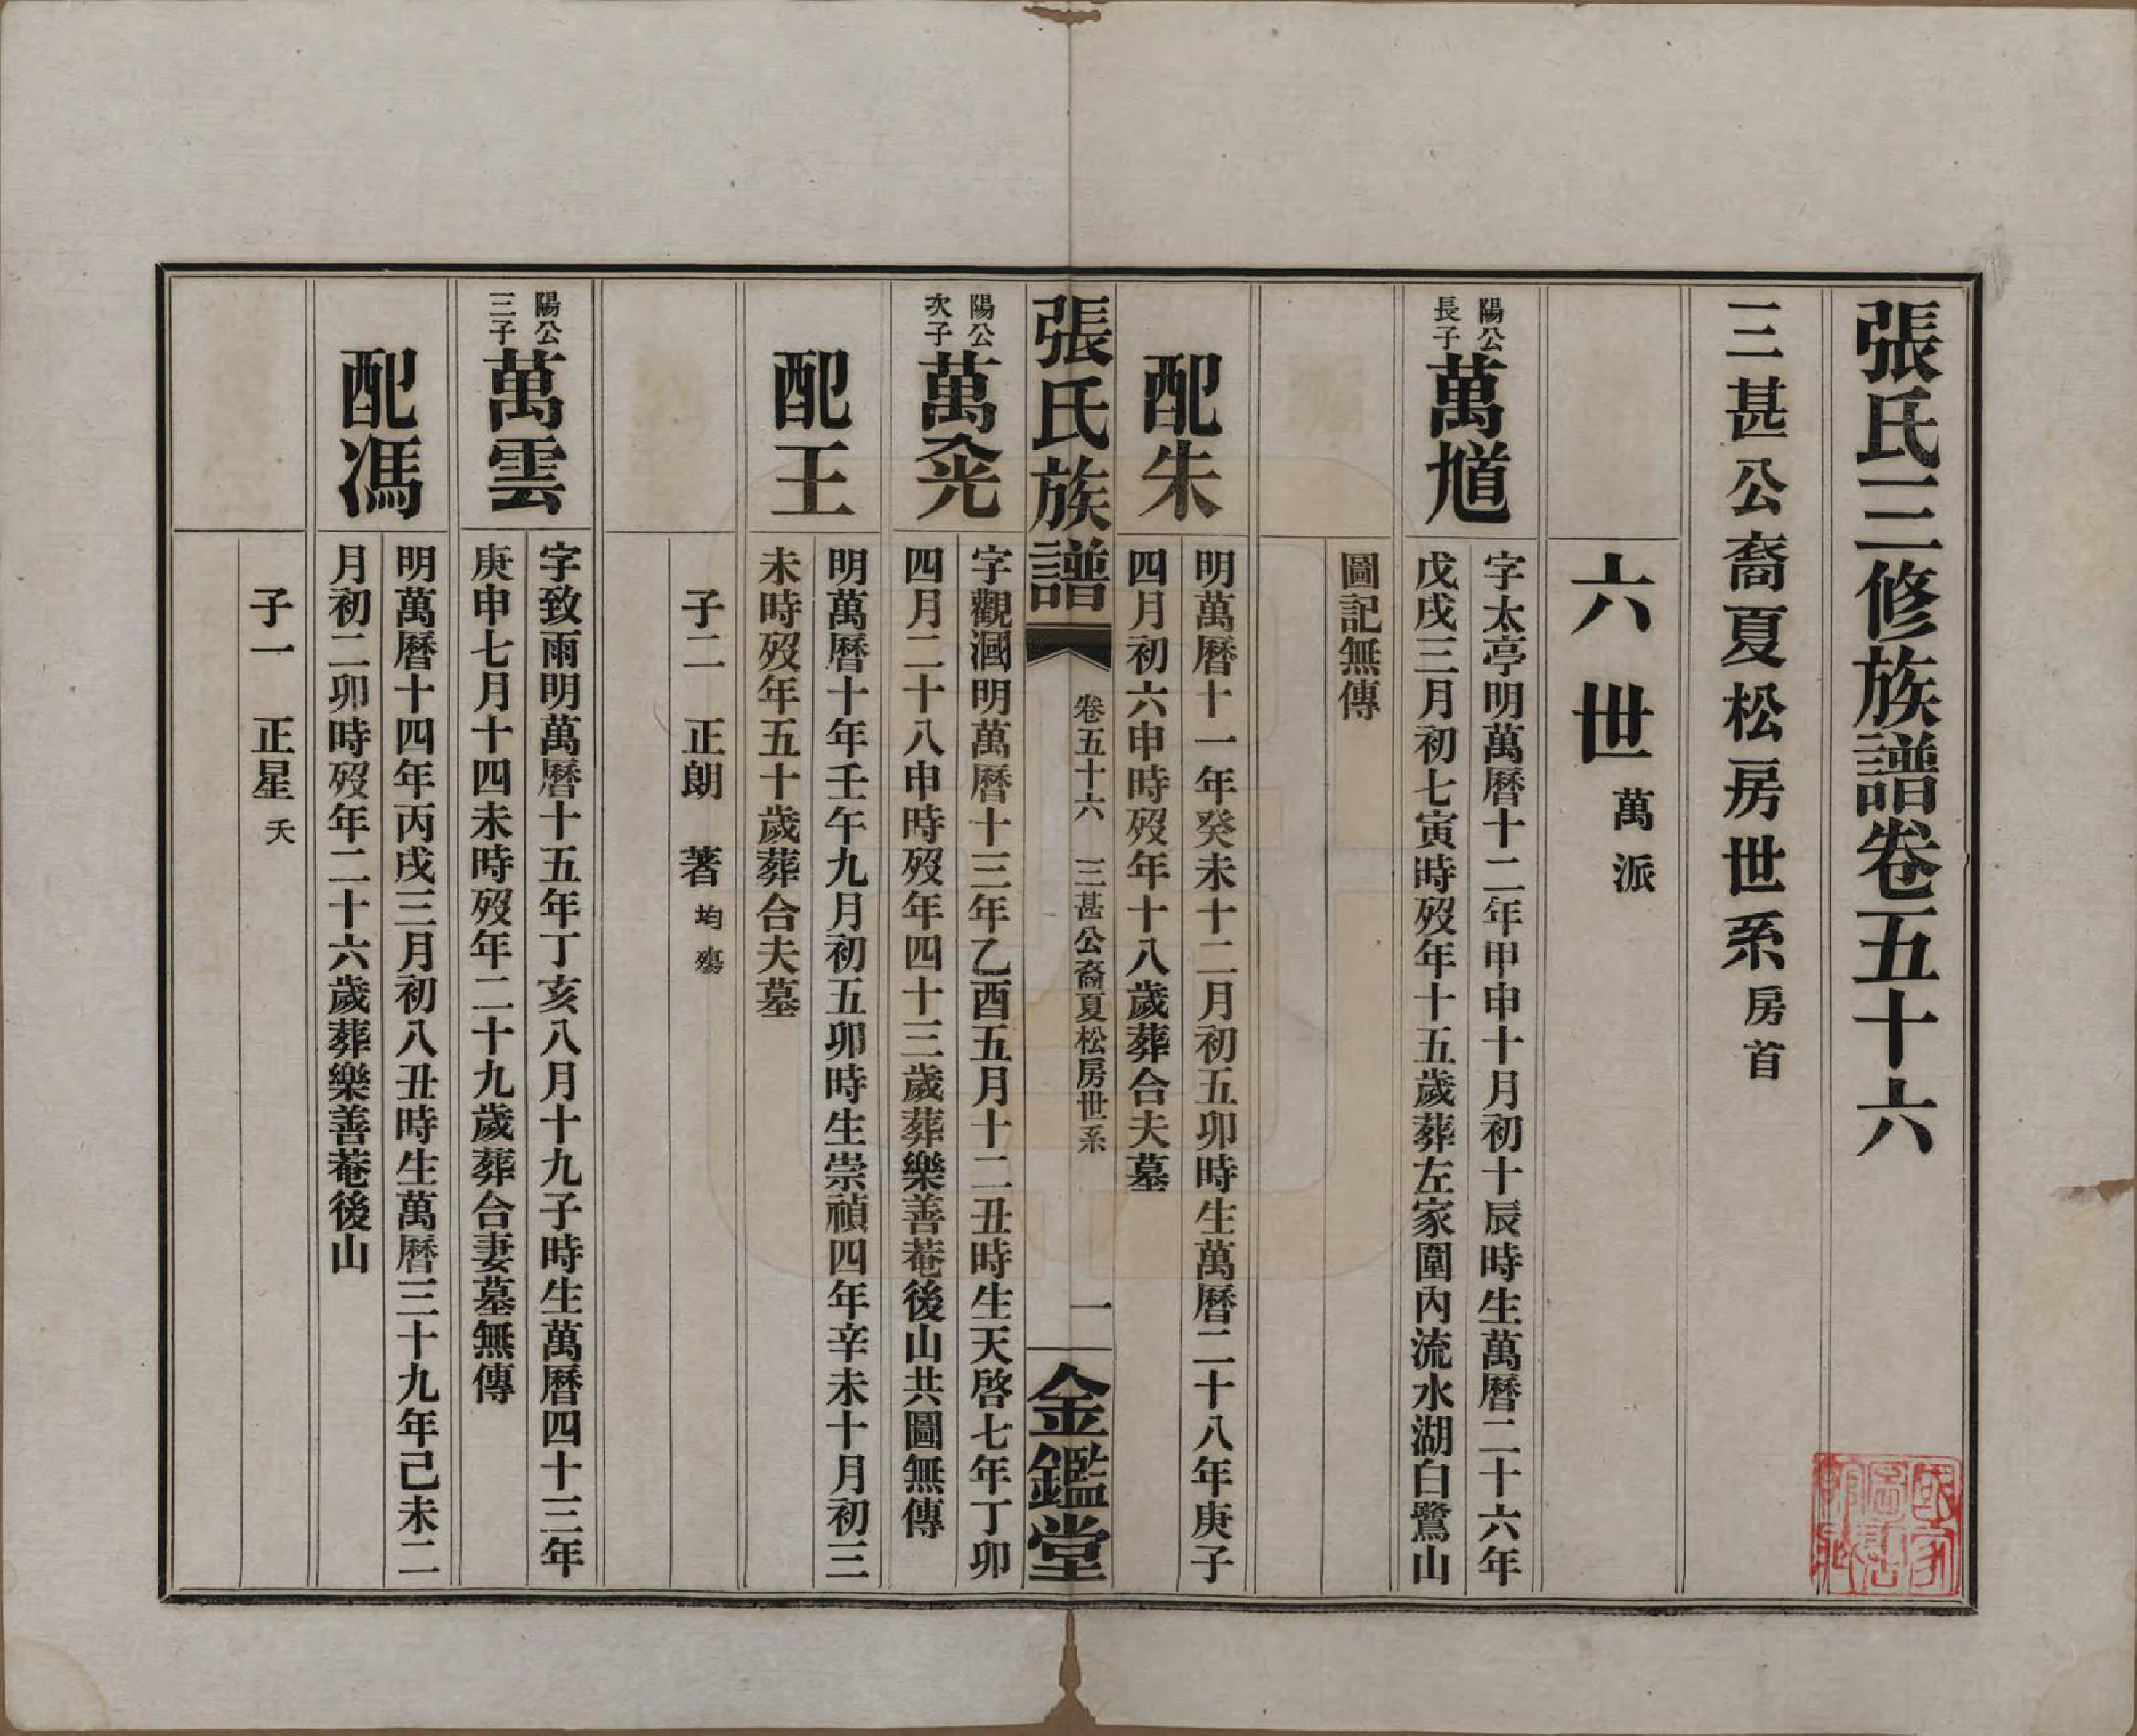 張氏三修族譜卷五十六
三甚公裔夏松房世系房首
六世萬派
陽公
長子
萬馗
字太亭明萬曆十二年甲申十月初十辰時生萬曆二十六年
戊戌三月初七寅時歿年十五歲葬左家圍內流水湖白鷺山
圖記無傳
配朱
明萬曆十一年癸未十二月初五卯時生萬曆二十八年庚子
四月初六申時歿年十八歲葬合夫墓
張氏族譜
卷五十六 三甚公裔夏松房世系
一
金鑑堂
陽公
次子
萬
字觀國明萬曆十三年乙酉五月十二丑時生天啓七年丁卯
四月二十八申時歿年四十三歲葬樂善菴後山共圖無傳
配王
明萬曆十年壬午九月初五卯時生崇禎四年辛未十月初三
未時歿年五十歲葬合夫墓
子二 正朗 著均殤
陽公
三子
萬雲
字致雨明萬曆十五年丁亥八月十九子時生萬曆四十三年
庚申七月十四未時歿年二十九歲葬合妻墓無傳
配馮
明萬曆十四年丙戌三月初八丑時生萬曆三十九年己未二
月初二卯時歿年二十六歲葬樂善菴後山
子一 正星夭